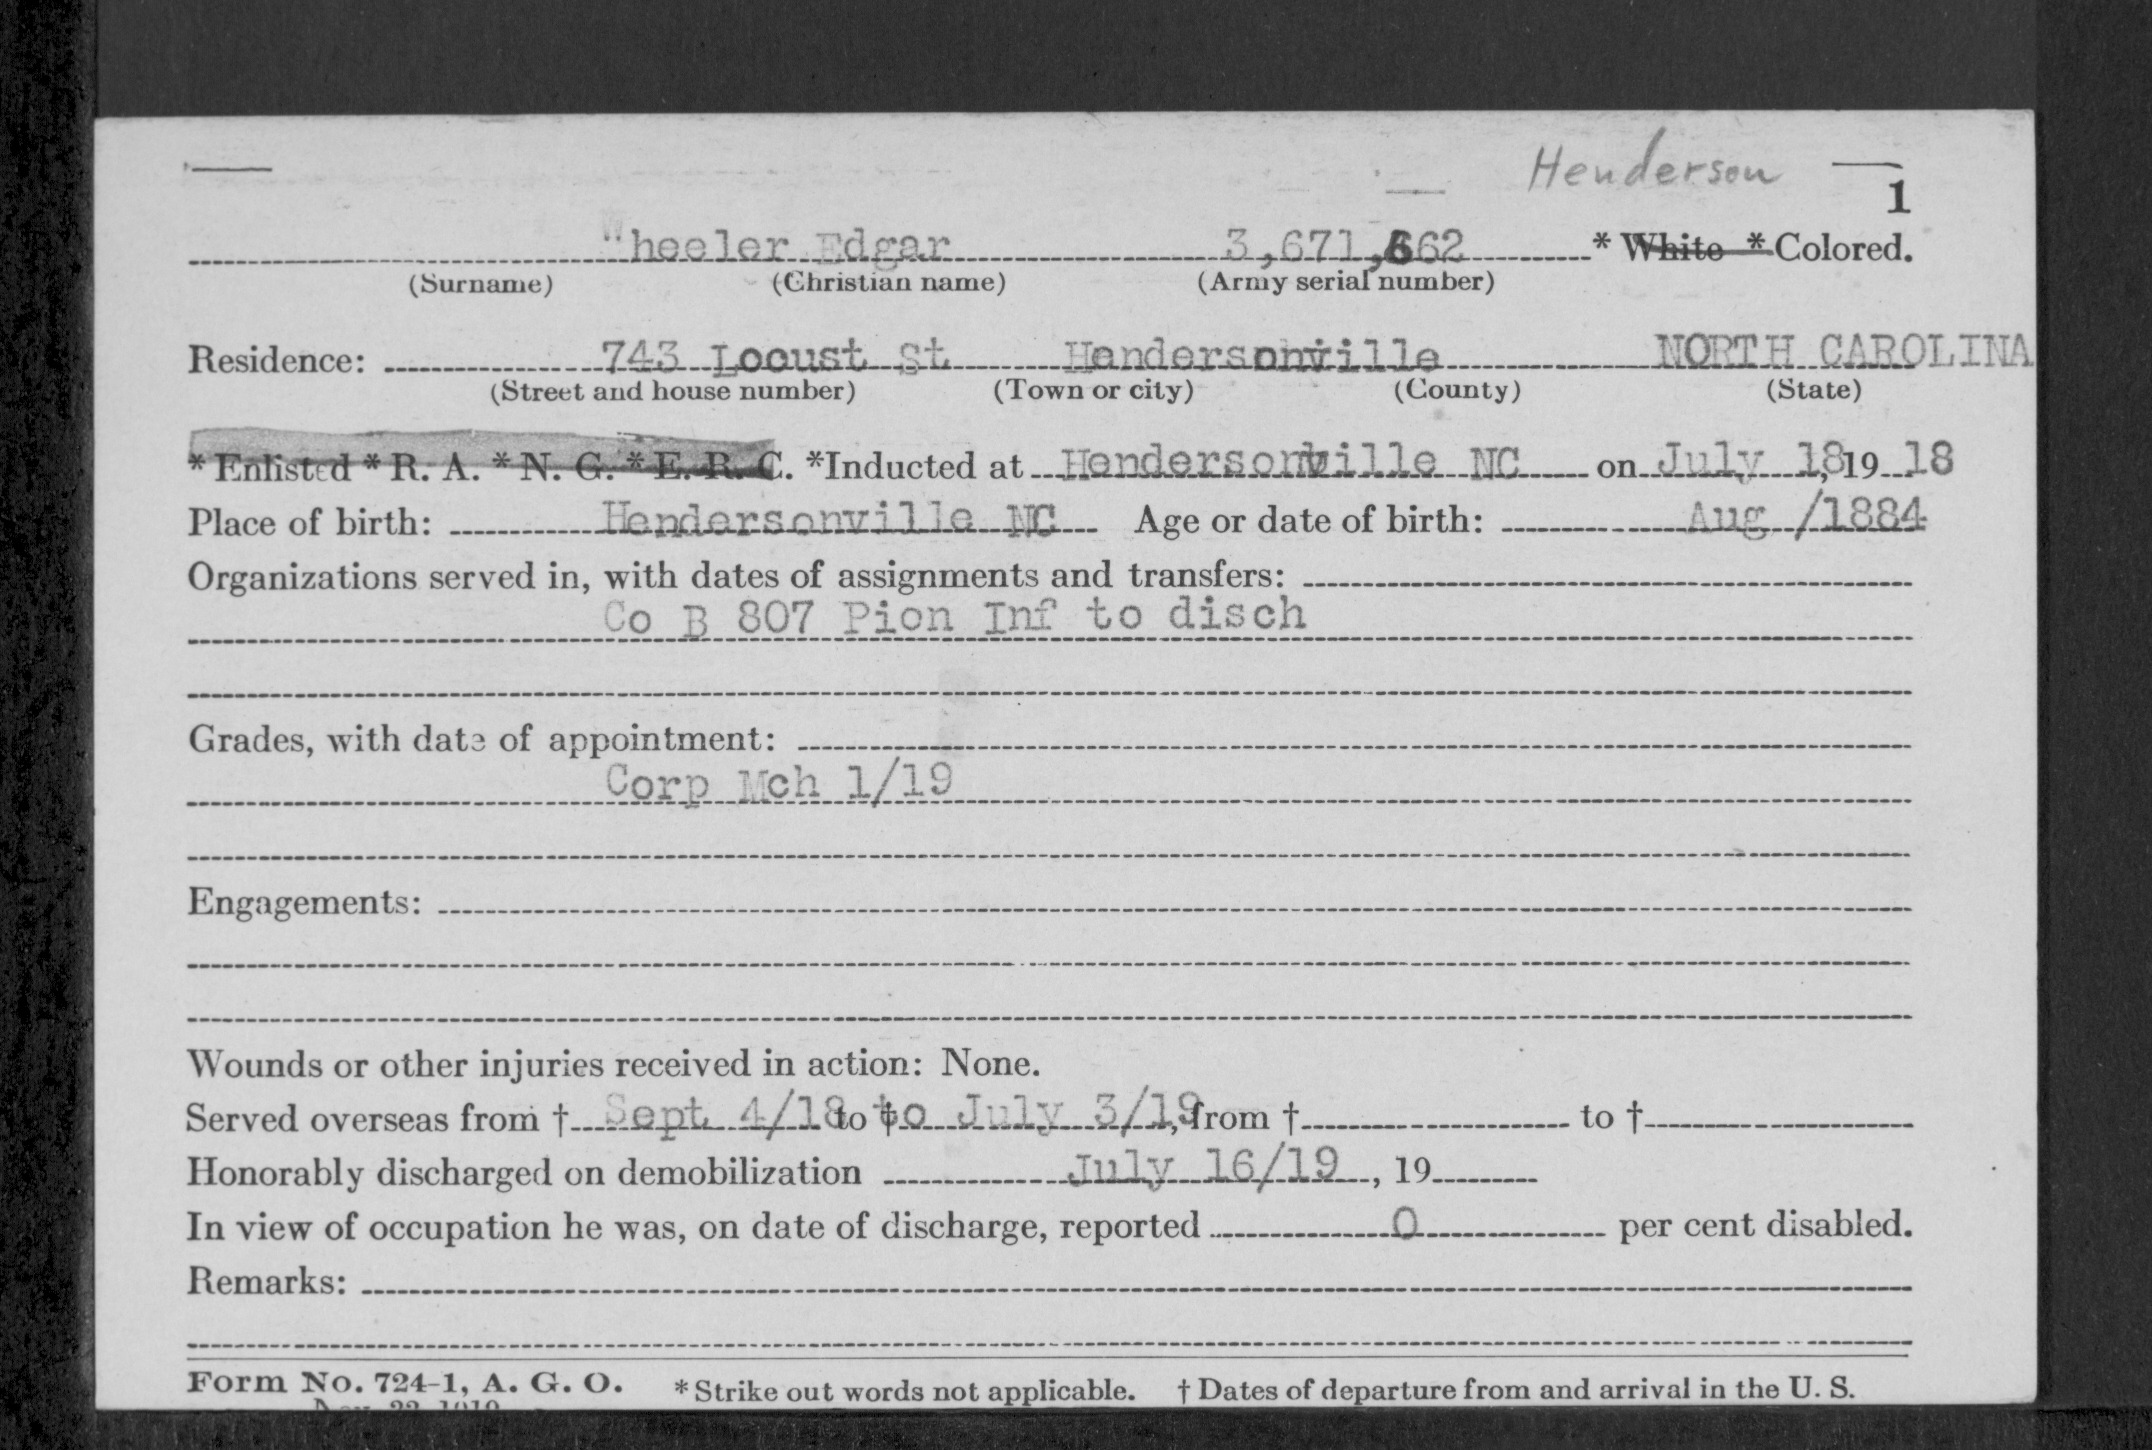 Henderson
1
Wheeler Edgar 3,671,662 * White * Colored.
(Surname) (Christian name) (Army serial number)
Residence: 743 Locust St Hendersonville NORTH CAROLINA
(Street and house number) (Town or city) (County) (State)
* Enlisted * R. A. * N. G. * E. R. C. *Inducted at Hendersonville NC on July 18, 19 18
Place of birth: Hendersonville NC Age or date of birth: Aug /1884
Organizations served in, with dates of assignments and transfers:
Co B 807 Pion Inf to disch
Grades, with date of appointment:
Corp Mch 1/19
Engagements:
Wounds or other injuries received in action: None.
Served overseas from † Sept 4/18 to † to July 3/19, from † to †
Honorably discharged on demobilization July 16/19, 19
In view of occupation he was, on date of discharge, reported 0 per cent disabled.
Remarks:
Form No. 724-1, A. G. O. * Strike out words not applicable. † Dates of departure from and arrival in the U. S.